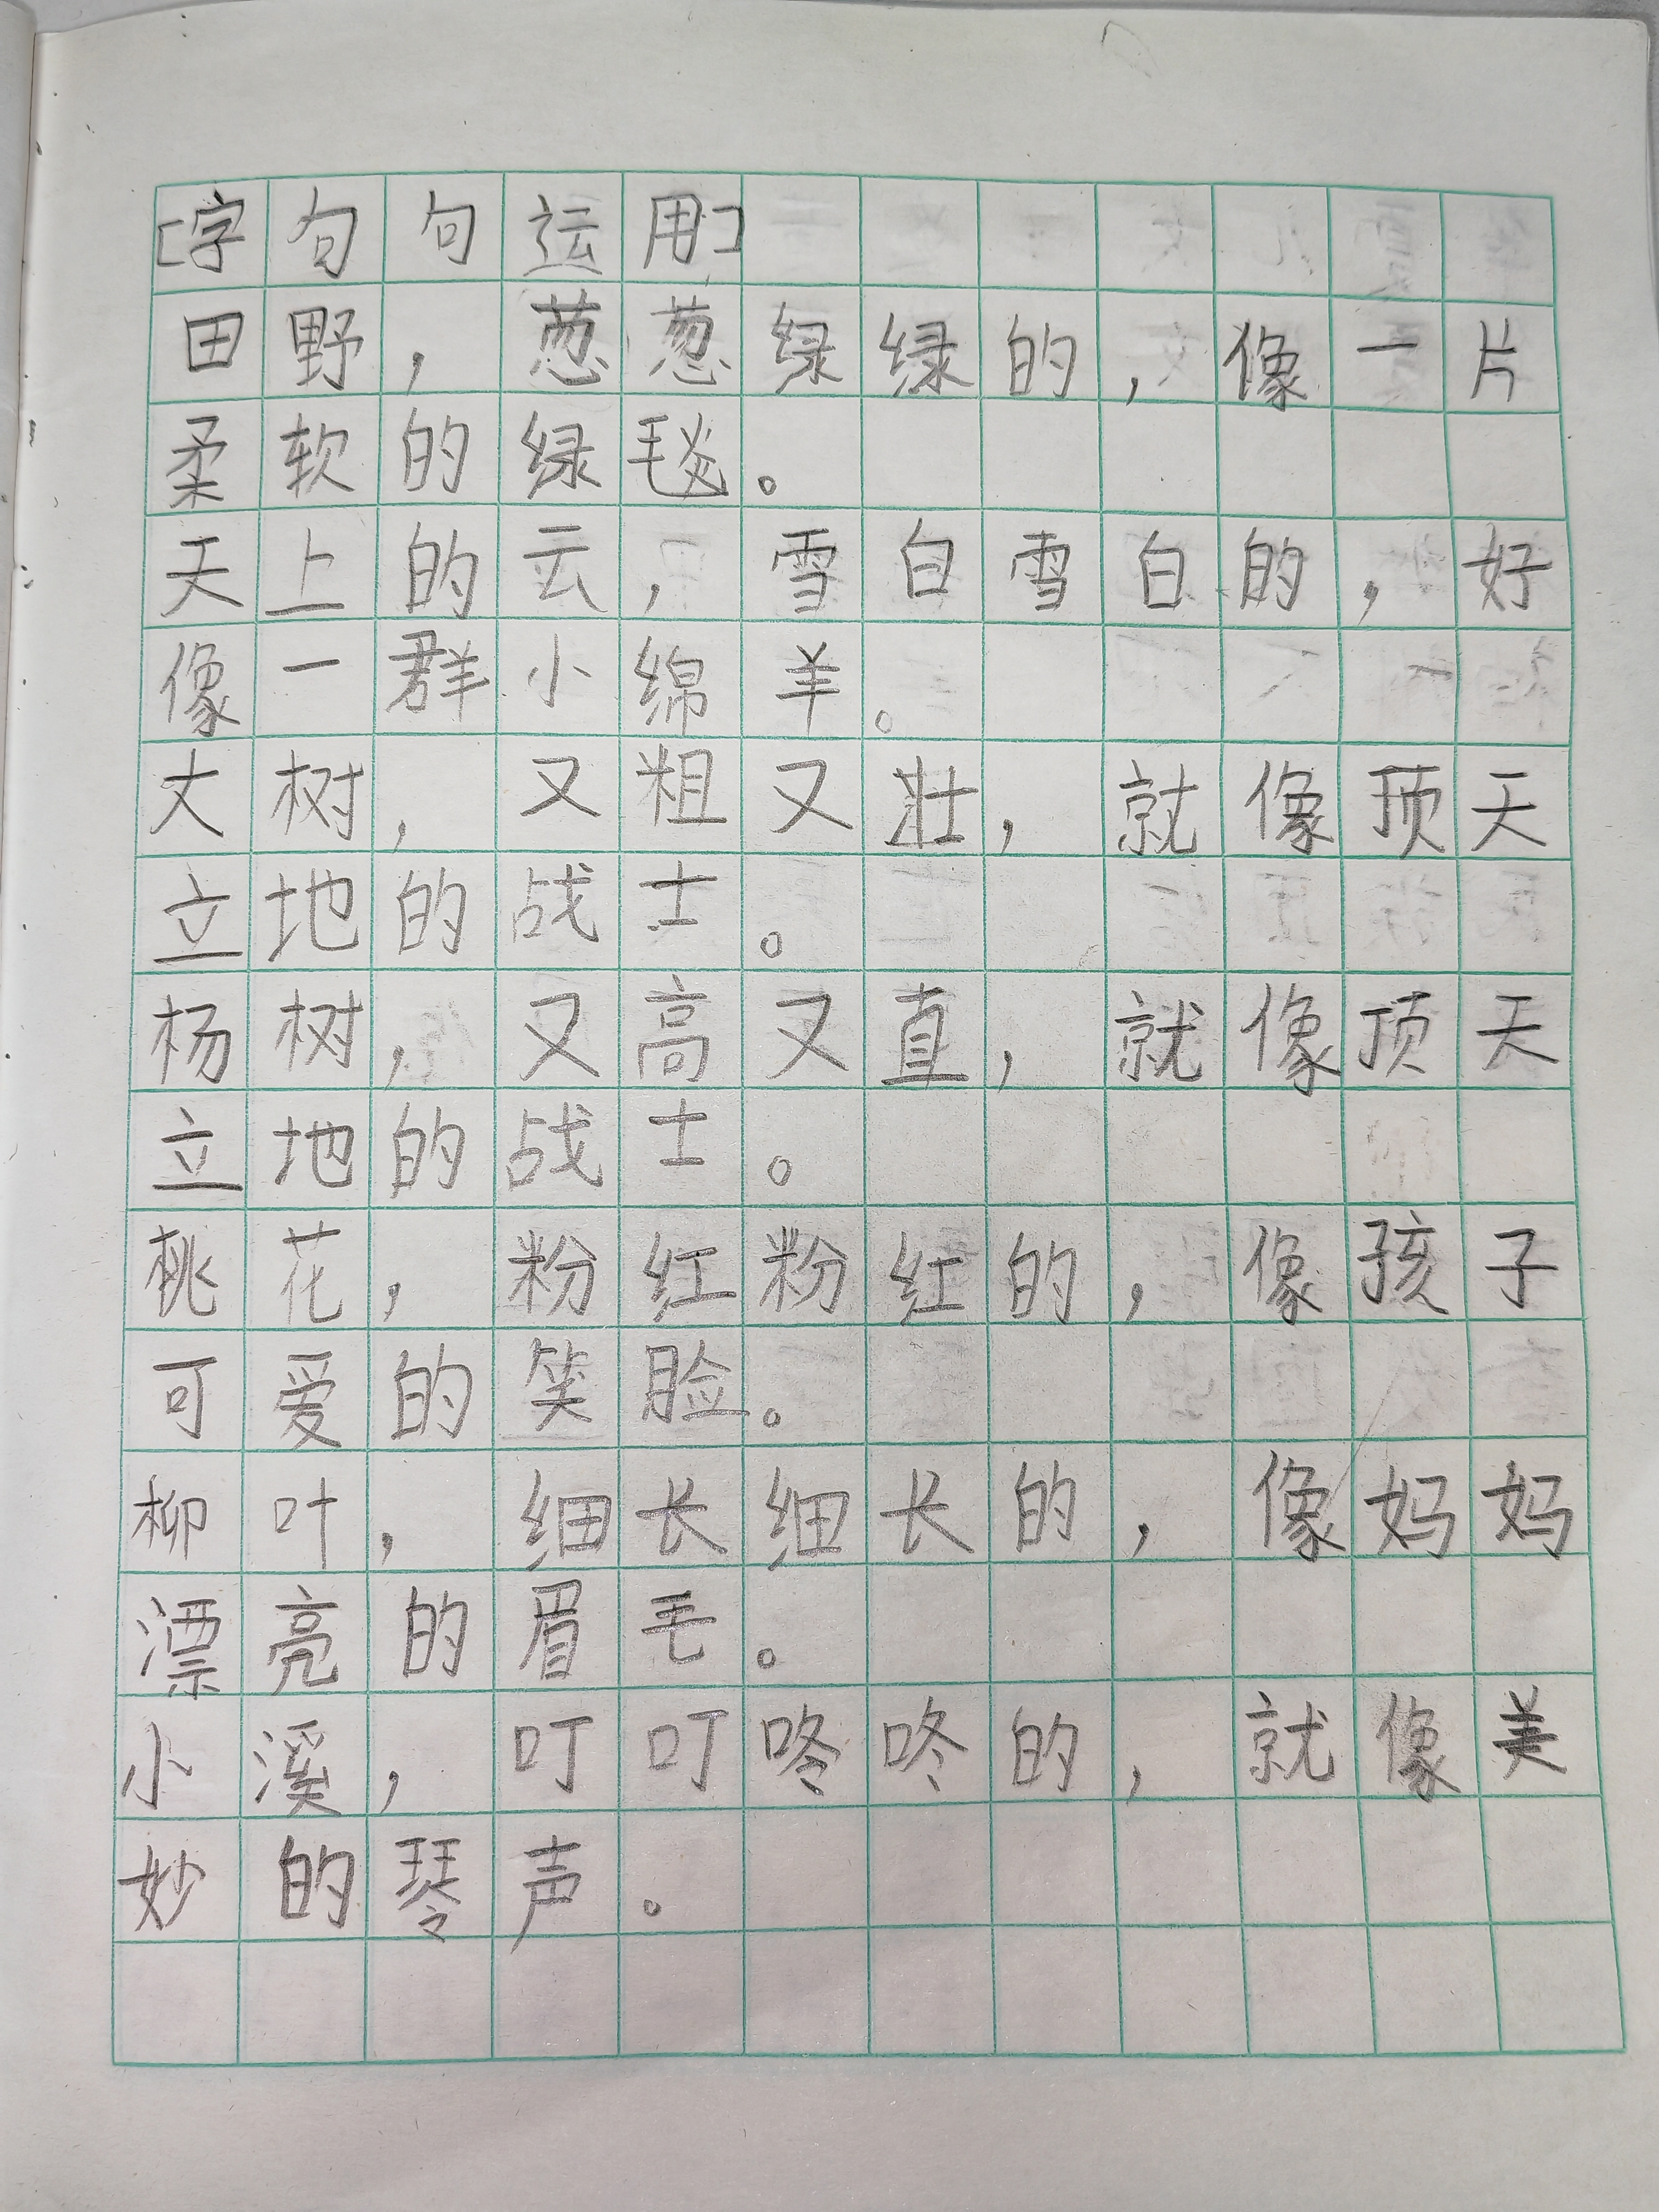 [字句句运用]
田野，葱葱绿绿的，像一片
柔软的绿毯。
天上的云，雪白雪白的，好
像一群小绵羊。
大树，又粗又壮，就像顶天
立地的战士。
杨树，又高又直，就像顶天
立地的战士。
桃花，粉红粉红的，像孩子
可爱的笑脸。
柳叶，细长细长的，像妈妈
漂亮的眉毛。
小溪，叮叮咚咚的，就像美
妙的琴声。